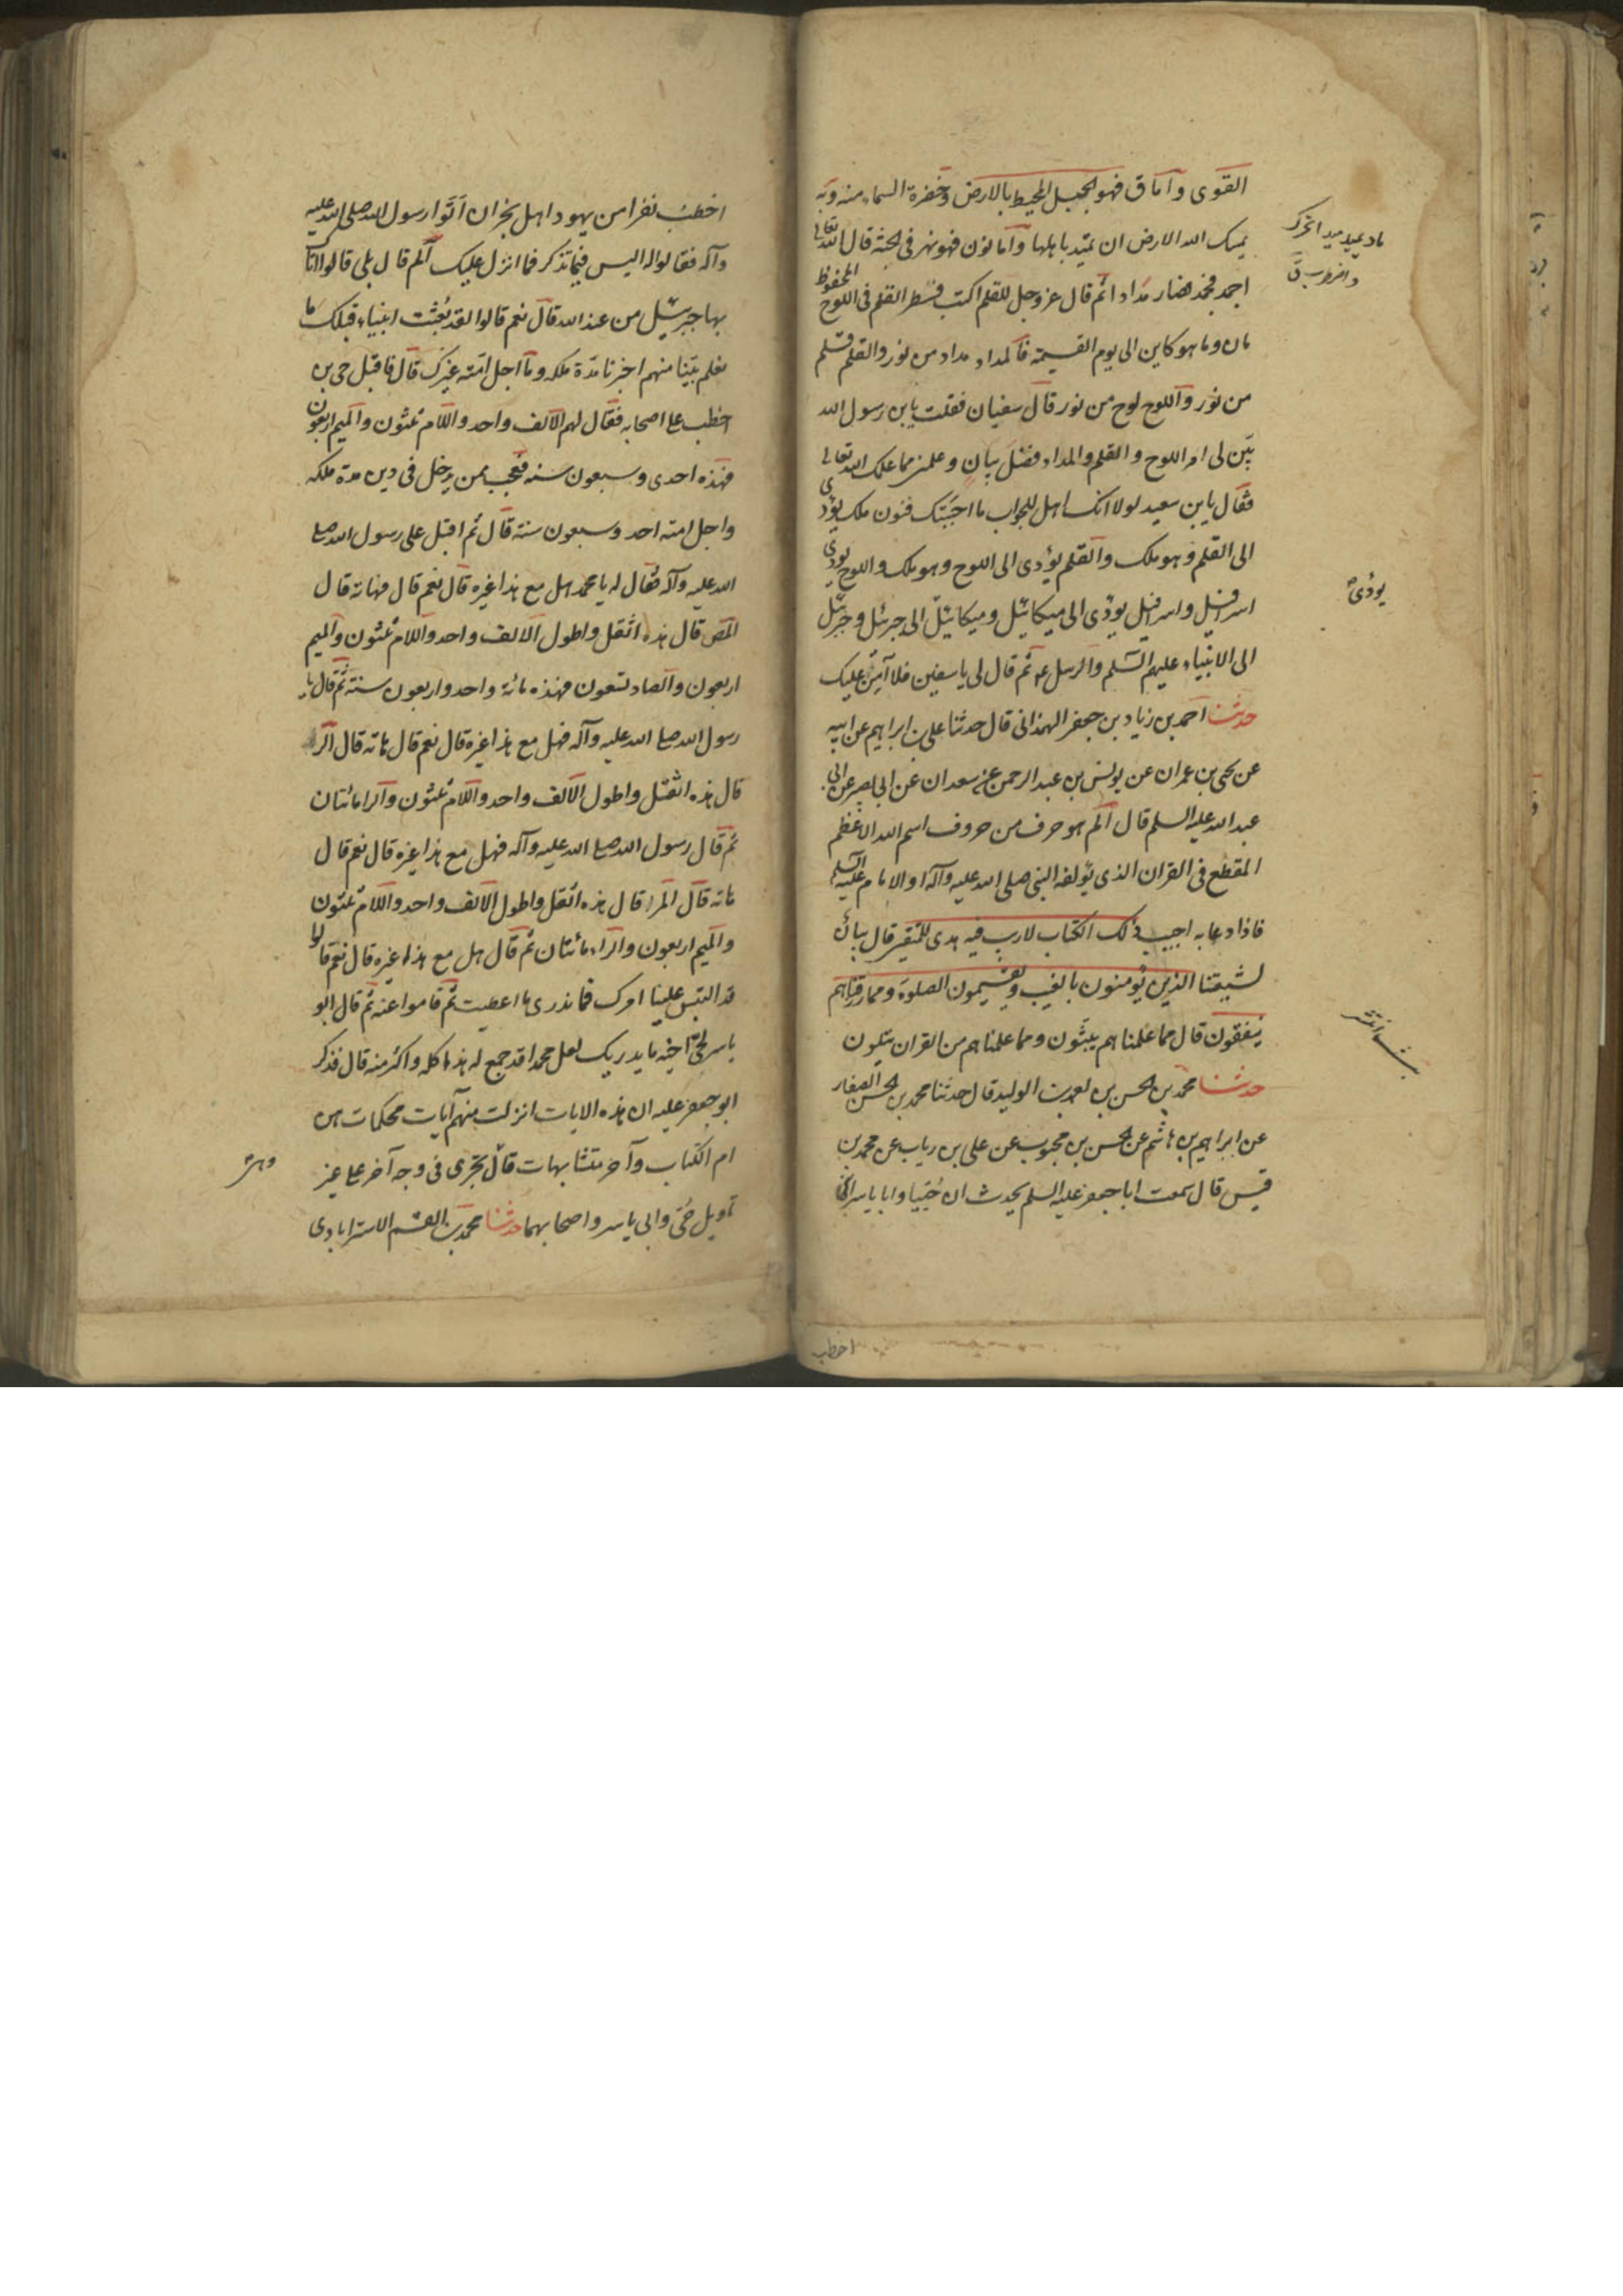 القوى وأما ق فهو الجبل المحيط بالارض وخضرة السماء منه وبه
يمسك الله الارض ان تميد باهلها وأما نون فهو نهر فى الجنة قال الله تعالى
اجمد فجمد فصار مدادا ثم قال عز وجل للقلم اكتب فسطر القلم فى اللوح المحفوظ
ما كان وما هو كاين الى يوم القيمة فالمداد مداد من نور والقلم قلم
من نور واللوح لوح من نور قال سفيان فقلت يابن رسول الله
بيّن لى امر اللوح والقلم والمداد فضل بيان وعلمنى مما علمك الله تعالى
فقال يابن سعيد لولا انك اهل للجواب ما اجبتك فنون ملك يؤدى
الى القلم وهو ملك والقلم يؤدى الى اللوح وهو ملك واللوح يودى
اسرافيل واسرافيل يودّى الى ميكائيل وميكائيل الى جبرئيل وجبرئيل
الى الانبياء عليهم السّلم والرسل ثم قال لى ياسفين فلا آمن عليك
حدثنا احمد بن زياد بن جعفر الهمدانى قال حدثنا على بن ابراهيم عن ابيه
عن يحيى بن عمران عن يونس بن عبد الرحمن عن سعدان عن ابى بصير عن ابى
عبد الله عليه السلم قال الم هو حرف من حروف اسم الله الاعظم
المقطع فى القران الذى يؤلفه النبى صلى الله عليه وآله او الامام عليه السلم
فاذا دعا به اجيب ذلك الكتاب لاريب فيه هدى للمتقين قال بيان
لشيعتنا الذين يؤمنون بالغيب ويقيمون الصلوة ومما رزقناهم
ينفقون قال مما علمناهم يبثّون ومما علمناهم من القران يتلون
حدثنا محمد بن الحسن بن احمد بن الوليد قال حدثنا محمد بن الحسن الصفار
عن ابراهيم بن هاشم عن الحسن بن محبوب عن على بن رياب عن محمد بن
قيس قال سمعت ابا جعفر عليه السلم يحدث ان حُيَيّا وابا ياسر ابنى
ماد يميد ميدا تحرك
يودّى
اخطب
اخطب نفرا من يهود اهل نجران اتوا رسول الله صلى الله عليه
وآله فقالوا له اليس فيما تذكر فما انزل عليك الم قال بلى قالوا اتاك
بها جبرئيل من عند الله قال نعم قالوا لقد بُعثت انبياء قبلك ما
نعلم نبيّنا منهم اخبرنا مدة ملكه وما اجل امّته غيرك قال فاقبل حى بن
اخطب على اصحابه فقال لهم الالف واحد واللام ثلثون والميم اربعون
فهذه احدى وسبعون سنه فعجب ممن يدخل فى دين مدة ملكه
واجل امته احد وسبعون سنة قال ثم اقبل على رسول الله صلى
الله عليه وآله فقال له يا محمد هل مع هذا غيره قال نعم قال فهاته قال
المص قال هذه اثقل واطول الالف واحد واللام ثلثون والميم
اربعون والصاد تسعون فهذه مائة واحد واربعون سنة ثم قال يا
رسول الله صلى الله عليه وآله فهل مع هذا غيره قال نعم قال هاته قال الر
قال هذه اثقل واطول الالف واحد واللام ثلثون والرا مائتان
ثم قال رسول الله صلى الله عليه وآله فهل مع هذا غيره قال نعم قال
هاته قال المر قال هذه اثقل واطول الالف واحد واللام ثلثون
والميم اربعون والراء مائتان ثم قال هل مع هذا غيره قال نعم قالوا
قد التبس علينا امرك فما ندرى ما اعطيت ثم قاموا عنه ثم قال ابو
ياسر لحى اخيه ما يدريك لعل محمدا قد جمع له هذا كله واكثر منه قال فذكر
ابو جعفر عليه ان هذه الايات انزلت منهم آيات محكمات هن
ام الكتاب وآخر متشابهات قال تجرى فى وجه آخر على غير
تاويل حُيّ وابى ياسر واصحابهما حدثنا محمد بن القسم الاسترابادى